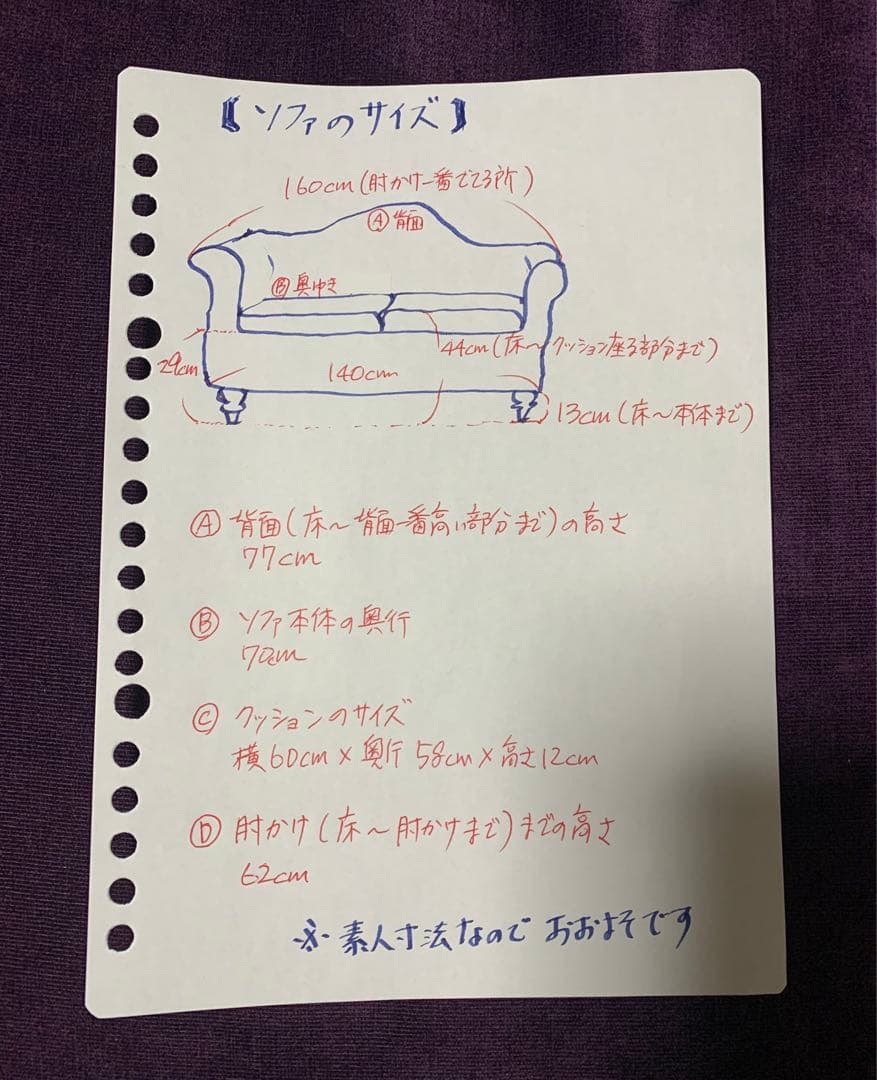 【ソファのサイズ】
160cm(肘かけ一番でてる所)
Ⓐ背面
Ⓑ奥ゆき
44cm(床〜クッション座る部分まで)
29cm
140cm
13cm(床〜本体まで)
Ⓐ 背面(床〜背面一番高い部分まで)の高さ
77cm
Ⓑ ソファ本体の奥行
70cm
Ⓒ クッションのサイズ
横60cm×奥行58cm×高さ12cm
Ⓓ 肘かけ(床〜肘かけまで)までの高さ
62cm
※素人寸法なので おおよそです